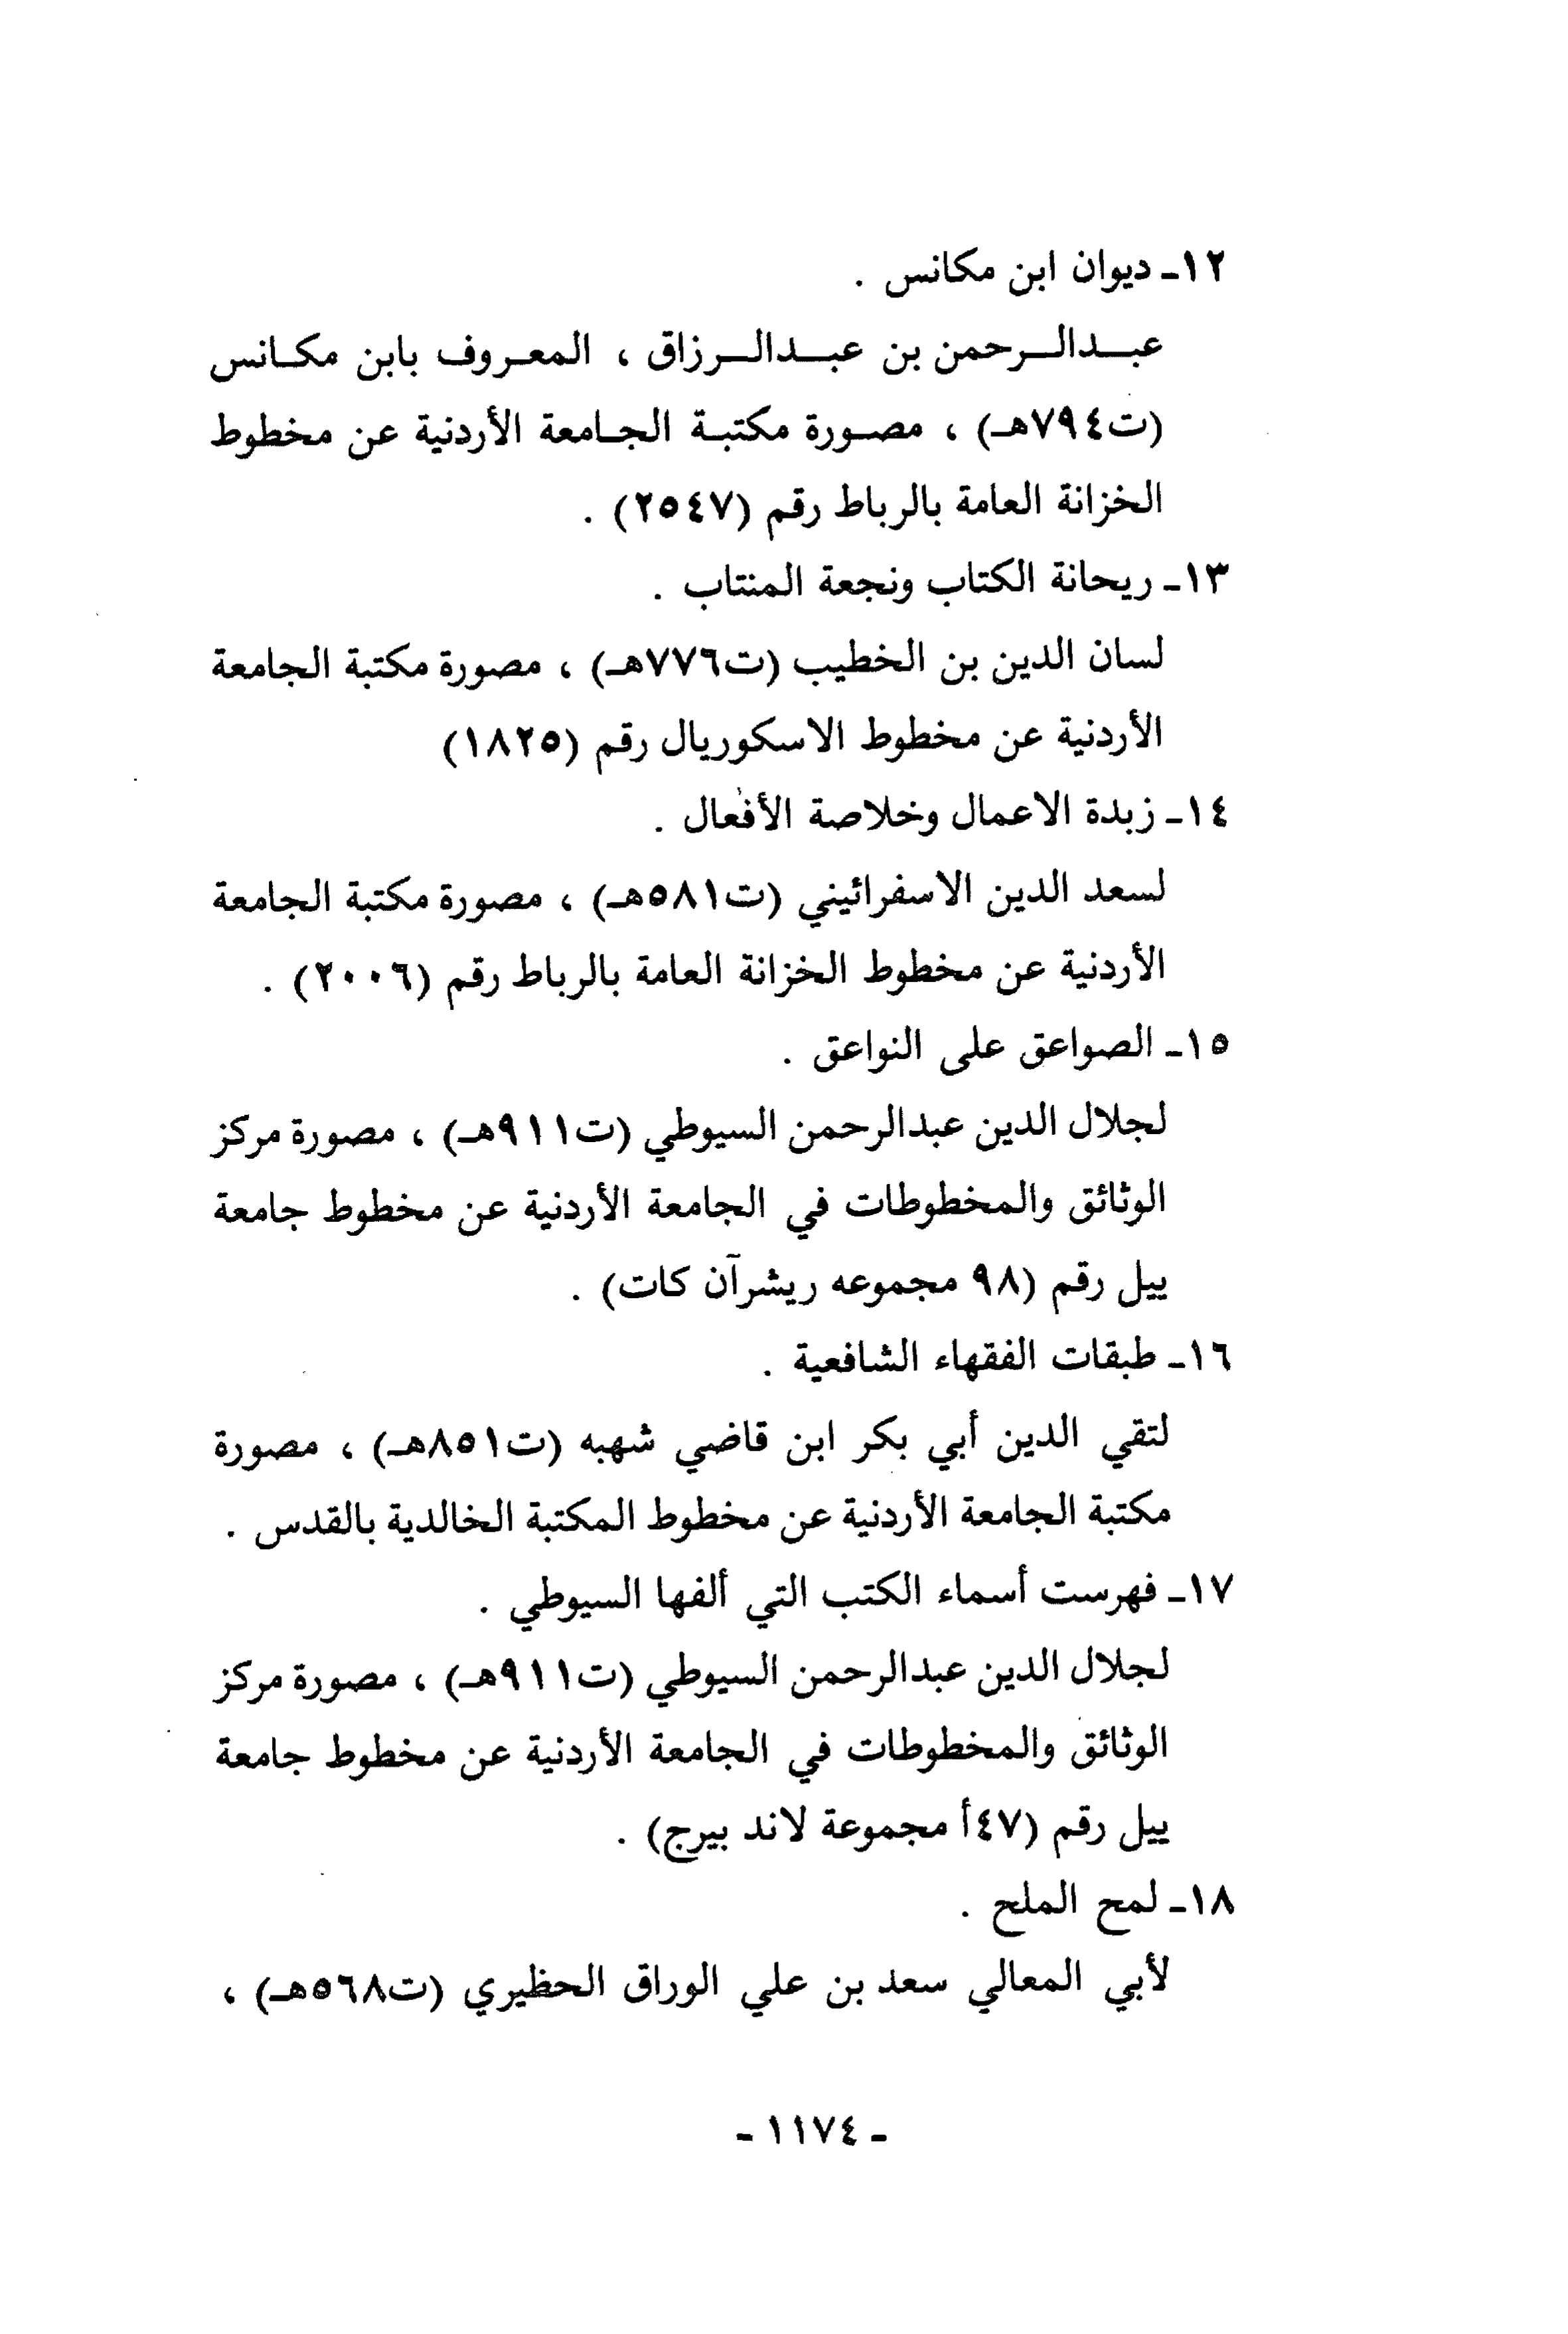 ١٢- ديوان ابن مكانس .
عبدالرحمن بن عبدالرزاق ، المعروف بابن مكانس
(ت٧٩٤هـ) ، مصورة مكتبة الجامعة الأردنية عن مخطوط
الخزانة العامة بالرباط رقم (٢٥٤٧) .
١٣- ريحانة الكتاب ونجعة المنتاب .
لسان الدين بن الخطيب (ت٧٧٦هـ) ، مصورة مكتبة الجامعة
الأردنية عن مخطوط الاسكوريال رقم (١٨٢٥)
١٤- زبدة الاعمال وخلاصة الأفعال .
لسعد الدين الاسفرائيني (ت٥٨١هـ) ، مصورة مكتبة الجامعة
الأردنية عن مخطوط الخزانة العامة بالرباط رقم (٢٠٠٦) .
١٥- الصواعق على النواعق .
لجلال الدين عبدالرحمن السيوطي (ت٩١١هـ) ، مصورة مركز
الوثائق والمخطوطات في الجامعة الأردنية عن مخطوط جامعة
ييل رقم (٩٨ مجموعه ريشرآن كات) .
١٦- طبقات الفقهاء الشافعية .
لتقي الدين أبي بكر ابن قاضي شهبه (ت٨٥١هـ) ، مصورة
مكتبة الجامعة الأردنية عن مخطوط المكتبة الخالدية بالقدس .
١٧- فهرست أسماء الكتب التي ألفها السيوطي .
لجلال الدين عبدالرحمن السيوطي (ت٩١١هـ) ، مصورة مركز
الوثائق والمخطوطات في الجامعة الأردنية عن مخطوط جامعة
ييل رقم (٤٧أ مجموعة لاند بيرج) .
١٨- لمح الملح .
لأبي المعالي سعد بن علي الوراق الحظيري (ت٥٦٨هـ) ،
- ١١٧٤ -